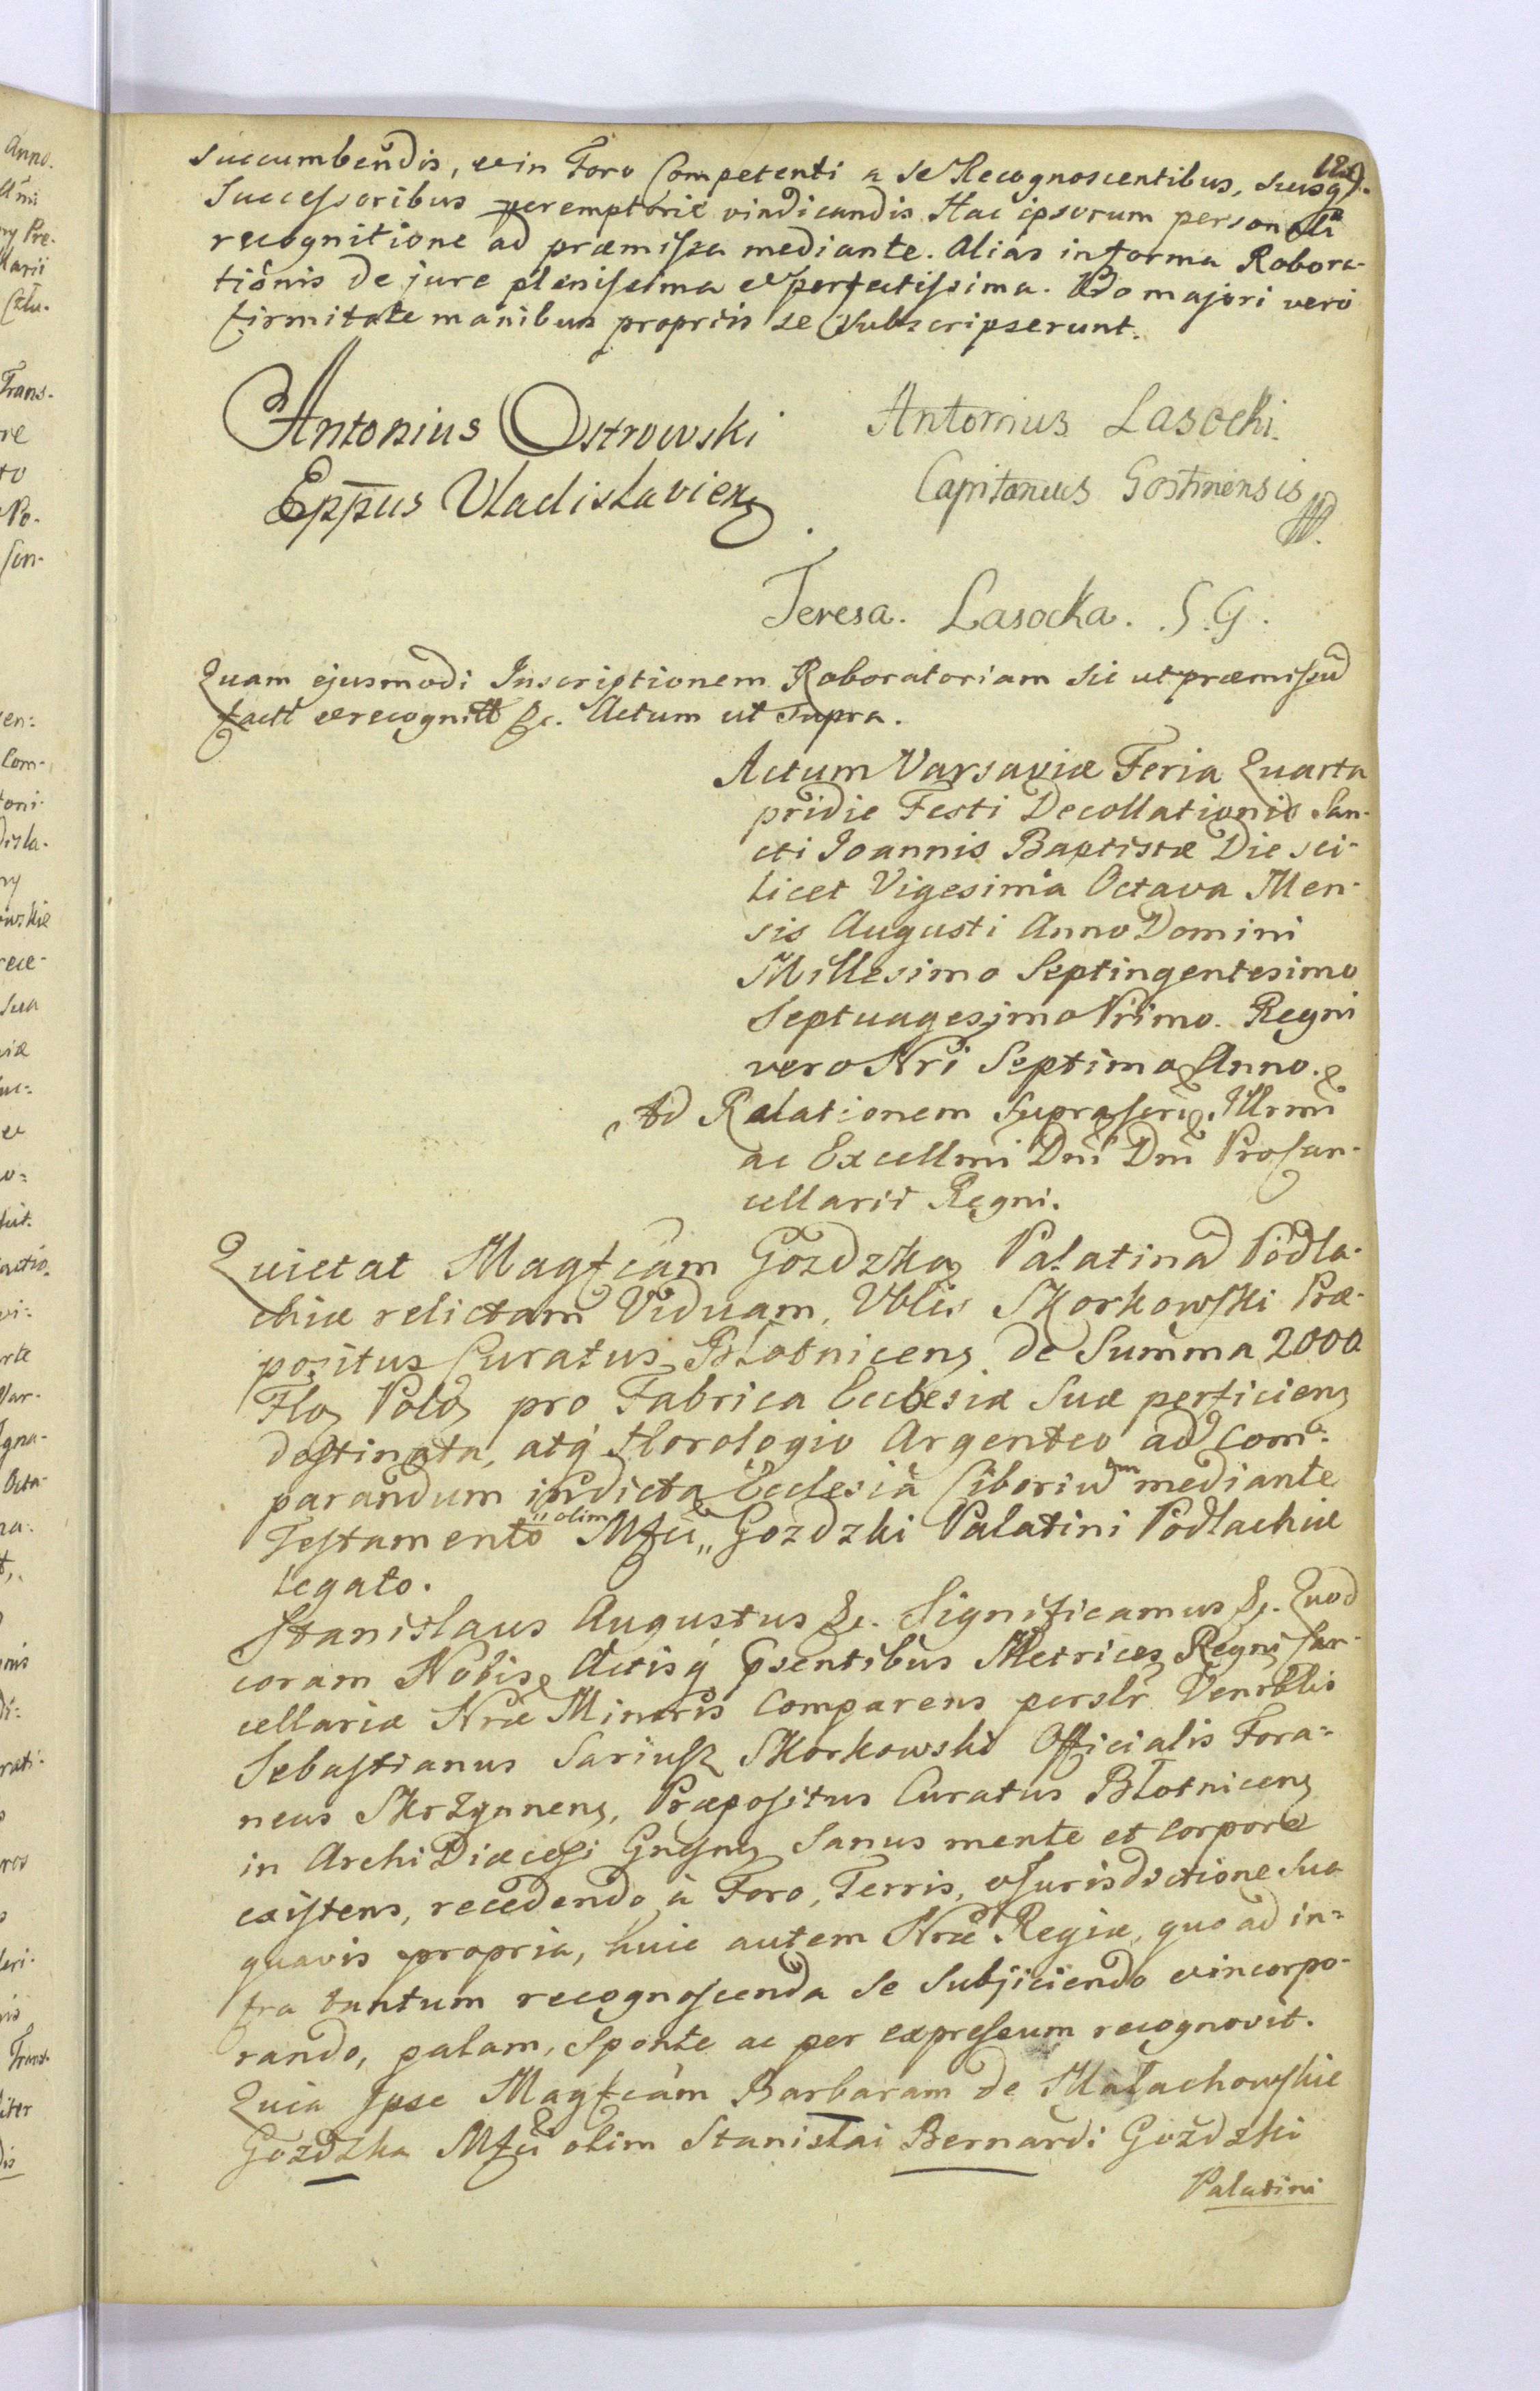 succumbendis, et in Foro Competenti a se Recognoscentibus, suisq
Successoribus peremptorie vindicandis Hac ipsorum personali
recognitione ad præmissa mediante. Alias in forma Robora-
tionis de jure plenissima et perfectissima. Pro majori vero
firmitate manibus propriis se subscripserunt.
Antonius Ostrowski
Eppus Vladislavien
Antonius Lasocki.
Capitaneus Gostinensis
Teresa. Lasocka. S.G.
Quam ejusmodi Inscriptionem Roboratoriam sic ut præmissũ
factt et recognitt &c. Actum ut supra.
Actum Varsaviæ Feria Quarta
pridie Festi Decollationis San-
cti Joannis Baptistæ Die sci-
licet Vigesima Octava Men-
sis Augusti Anno Domini
Millesimo Septingentesimo
Septuagesimo Primo. Regni
vero Nri Septimo Anno.
Ad Relationem suprascrip. Illrmi
ac Excellmi Dni Dni Procan-
cellarii Regni.
Quietat Magfcam Gozdzka Palatinã Podla-
chiæ relictam Viduam, Vblis Skorkowski Præ-
positus Curatus Błotnicens de Summa 2000
Flo Polo pro Fabrica Ecclesiæ suæ perficien
destinata, atq Horologio Argenteo ad com-
parandum in dicta Ecclesia Ciboriũ mediante
Testamento Mfci „olim„ Gozdzki Palatini Podlachiæ
legato.
Stanislaus Augustus &c. Significamus &c. Quod
coram Nobis, Actisq psentibus Metrices Regni Can-
cellariæ Nræ Minoris Comparens perslr Venrblis
Sebastianus Sariusz Skorkowski Officialis Fora-
neus Skrzynnens, Præpositus Curatus Błotnicens
in Archi Diæcesi Gnesn Sanus mente et corpore
existens, recedendo à Foro, Terris, et Jurisdictione sua
quavis propria, huic autem Nræ Regiæ, quo ad in-
fra tantum recognoscenda se subjiciendo et incorpo-
rando, palam, sponte ac per expressum recognovit.
Quia Ipse Magfcam Barbaram de Małachowskie
Gozdzka Mfci olim Stanislai Bernardi Gozdzki
Palatini